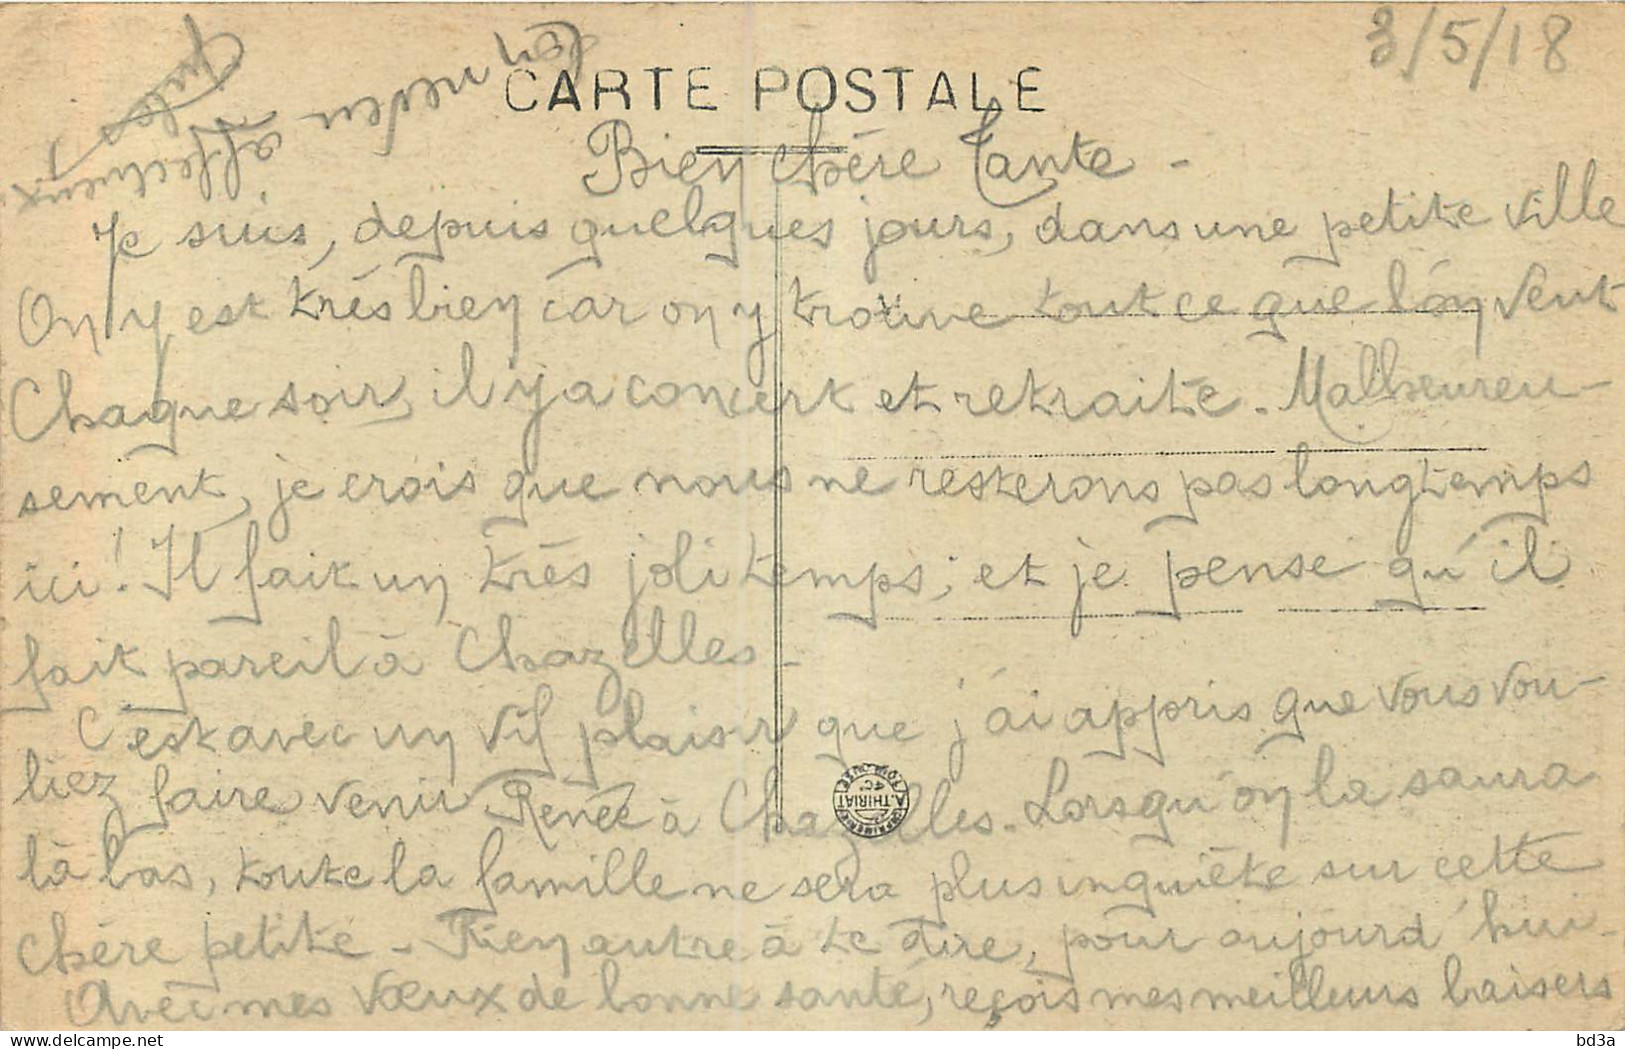 3/5/18
CARTE POSTALE
Bien chère Tante -
Je suis, depuis quelques jours, dans une petite ville
On y est très bien car on y trouve tout ce que l'on veut
Chaque soir, il y a concert et retraite. Malheureu-
sement, je crois que nous ne resterons pas longtemps
ici! Il fait un très joli temps; et je pense qu'il
fait pareil à Chazelles -
C'est avec un vif plaisir que j'ai appris que vous vou-
liez faire venir Renée à Chazelles. Lorsqu'on la saura
là bas, toute la famille ne sera plus inquiète sur cette
chère petite - Rien autre à te dire, pour aujourd'hui -
Avec mes vœux de bonne santé, reçois mes meilleurs baisers
Ton neveu
affectueux
Jules
IMPRIMERIE A. THIRIAT
TOULOUSE
bd3a